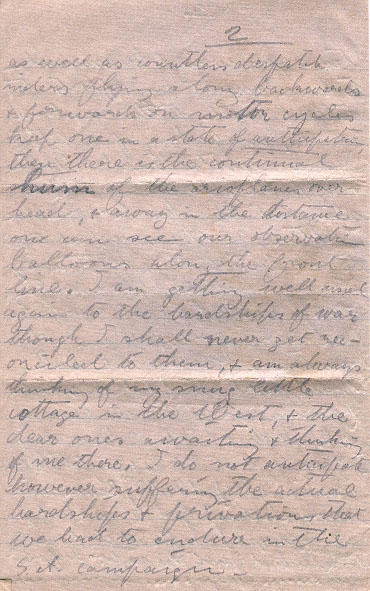 2
as well as countless despatch
riders flying along backwards
& forwards on motor cycles
keep one in a state of anticipation,
then there is the continual
hum of the aeroplanes over
head, & away in the distance
one can see our observation
balloons along the front
line. I am getting well used
again to the hardships of war
though I shall never get rec-
onciled to them, & am always
thinking of my snug little
cottage in the West, & the
dear ones awaiting & thinking
of me there. I do not anticipate
however suffering the actual
hardships & privations that
we had to endure in the
S.A. campaign.